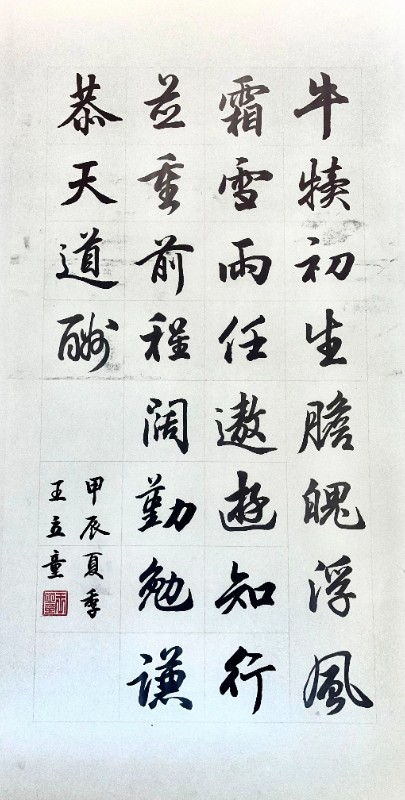 牛犊初生膽魄浮風
霜雪雨任遨遊知行
並重前程阔勤勉谦
恭天道酬
甲辰夏季
王立童